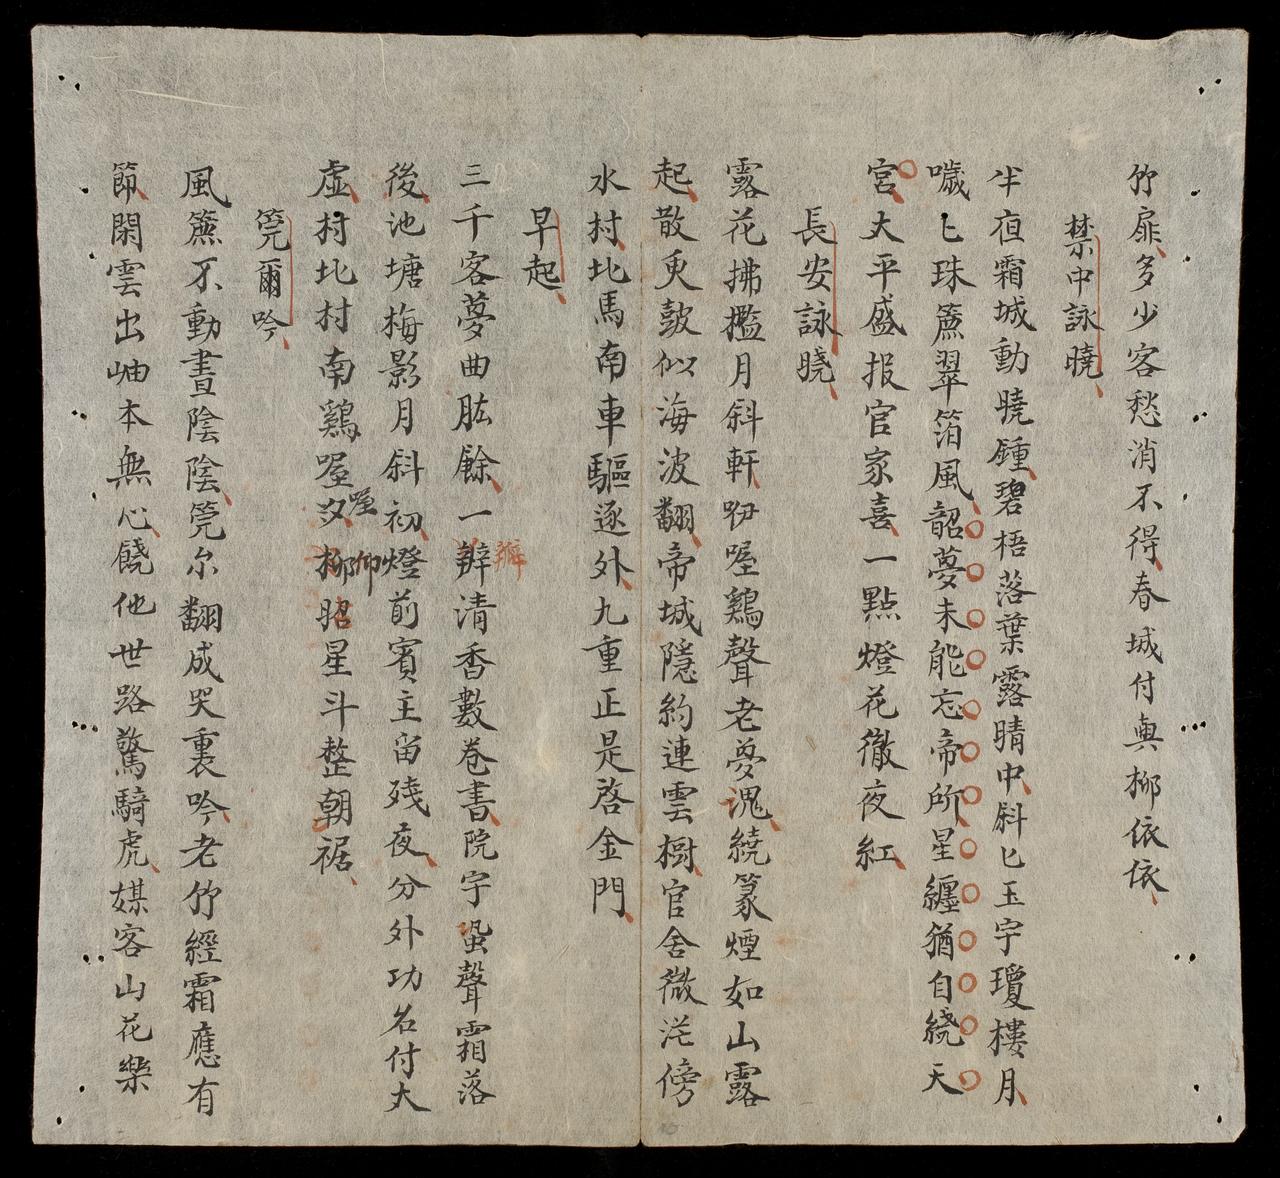 竹扉多少客愁消不得春城付與柳依依
禁中詠曉
半夜霜城動曉鍾碧梧落葉露晴中斜匕玉宇瓊樓月
噦匕珠簾翠箔風韶夢未能忘帝所星纏猶自繞天
宮太平盛报官家喜一點燈花徹夜紅
長安詠曉
露花拂檻月斜軒咿喔鷄聲老夢魂繞篆煙如山露
起散更鼓似海波翻帝城隱約連雲樹官舍微茫傍
水村北馬南車驅逐外九重正是啓金門
早起
三千客夢曲肱餘一辦清香數卷書院宇蛩聲霜落
辦
後池塘梅影月斜初燈前賓主留残夜分外功名付丈
虛村北村南鷄喔汝柳昭星斗整朝裾
喔
仰
筦爾吟
風簾不動晝陰陰筦尔翻成哭裏吟老竹經霜應有
節閑雲出岫本無心饒他世路驚騎虎媒客山花樂